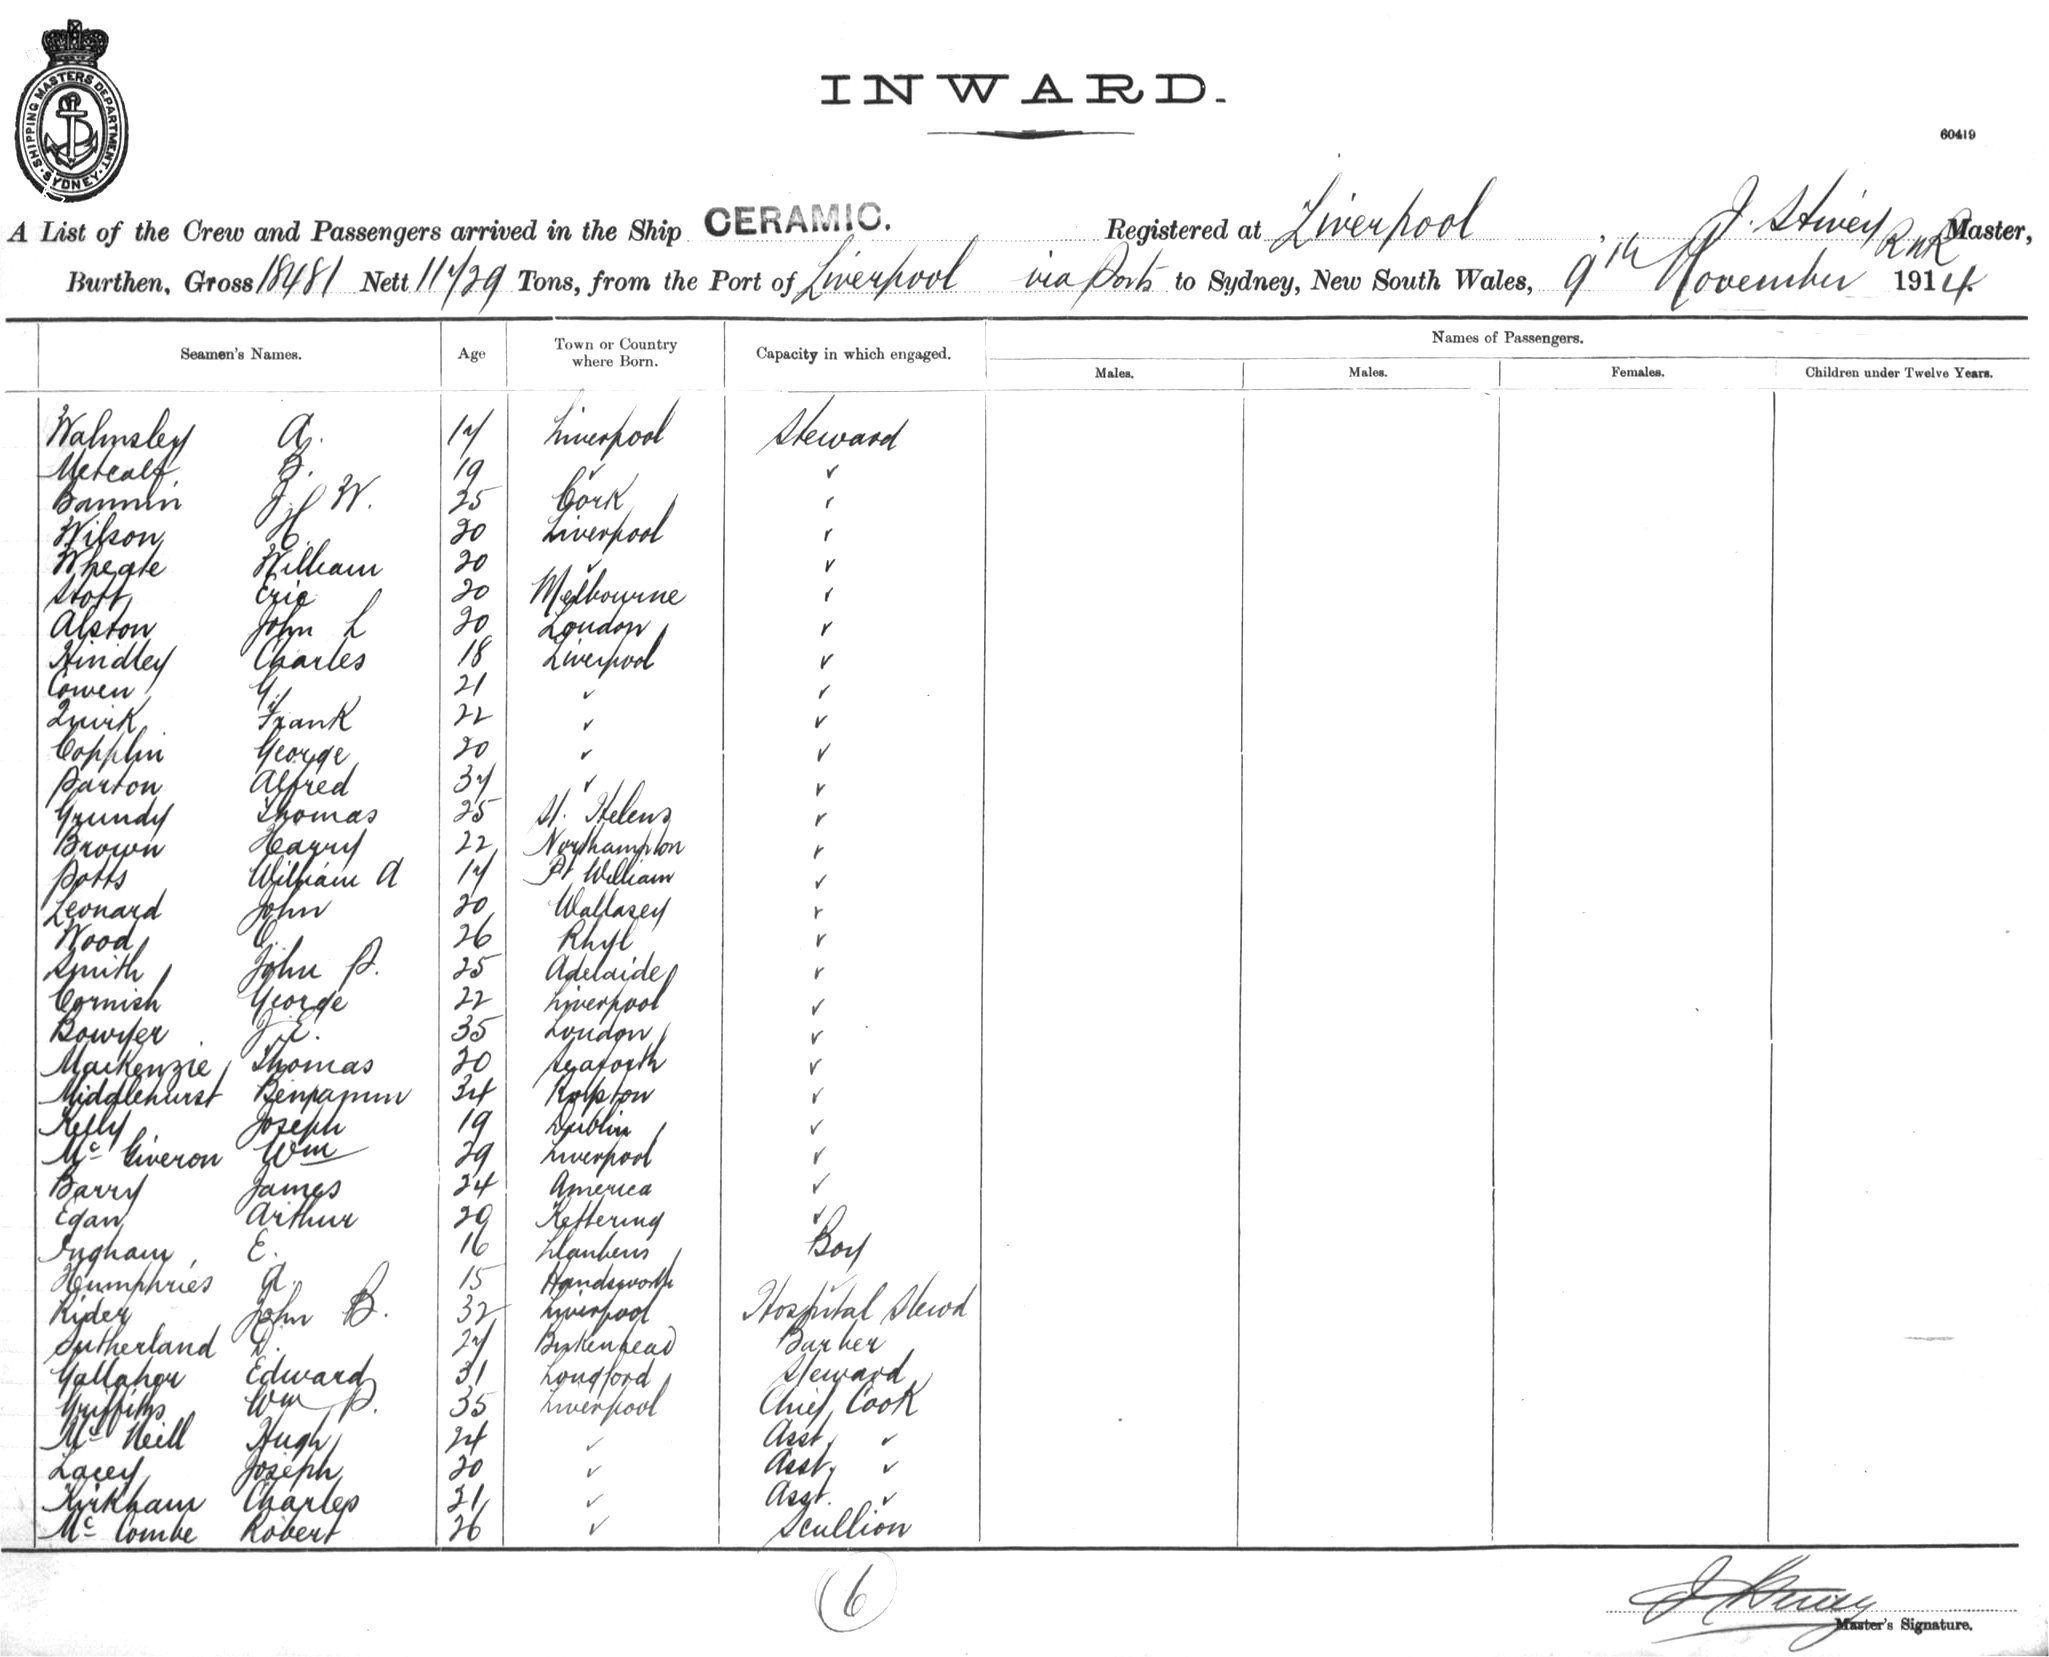 SHIPPING MASTERS DEPARTMENT · SYDNEY ·
INWARD.
60419
A List of the Crew and Passengers arrived in the Ship CERAMIC. Registered at Liverpool, J. Stivey RNR Master,
Burthen, Gross 18481 Nett 11729 Tons, from the Port of Liverpool via Ports to Sydney, New South Wales, 9th November 1914.
Seamen's Names. Age Town or Country where Born. Capacity in which engaged. Names of Passengers.
Males. Males. Females. Children under Twelve Years.
Walmsley A. 17 Liverpool Steward
Metcalf B. 19 " "
Bannin J. W. 25 Cork "
Wilson H. 20 Liverpool "
Wheate William 20 " "
Stott Eric 20 Melbourne "
Alston John L 20 London "
Hindley Charles 18 Liverpool "
Cowen G. 21 " "
Quirk Frank 22 " "
Copplin George 20 " "
Parton Alfred 37 " "
Grundy Thomas 25 St. Helens "
Brown Harry 22 Northampton "
Potts William A 17 Pt William "
Leonard John 20 Wallasey "
Wood 26 Rhyl "
Smith John P. 25 Adelaide "
Cornish George 22 Liverpool "
Bowyer J. E. 35 London "
Mackenzie Thomas 20 Seaforth "
Middlehurst Benjamin 34 "
Kelly Joseph 19 Dublin "
Mc Giveron Wm 29 Liverpool "
Barry James 24 America "
Egan Arthur 29 Kettering "
Ingham E. 16 Boy
Humphries A. 15 Handsworth "
Rider John B. 32 Liverpool Hospital Stewd
Sutherland D. 27 Birkenhead Barber
Gallaher Edward 31 Longford Steward
Griffiths Wm P. 35 Liverpool Chief Cook
Mc Neill Hugh 24 " Asst. "
Lacey Joseph 20 " Asst. "
Kirkham Charles 21 " Asst. "
Mc Combe Robert 26 " Scullion
6
J Stivey
Master's Signature.